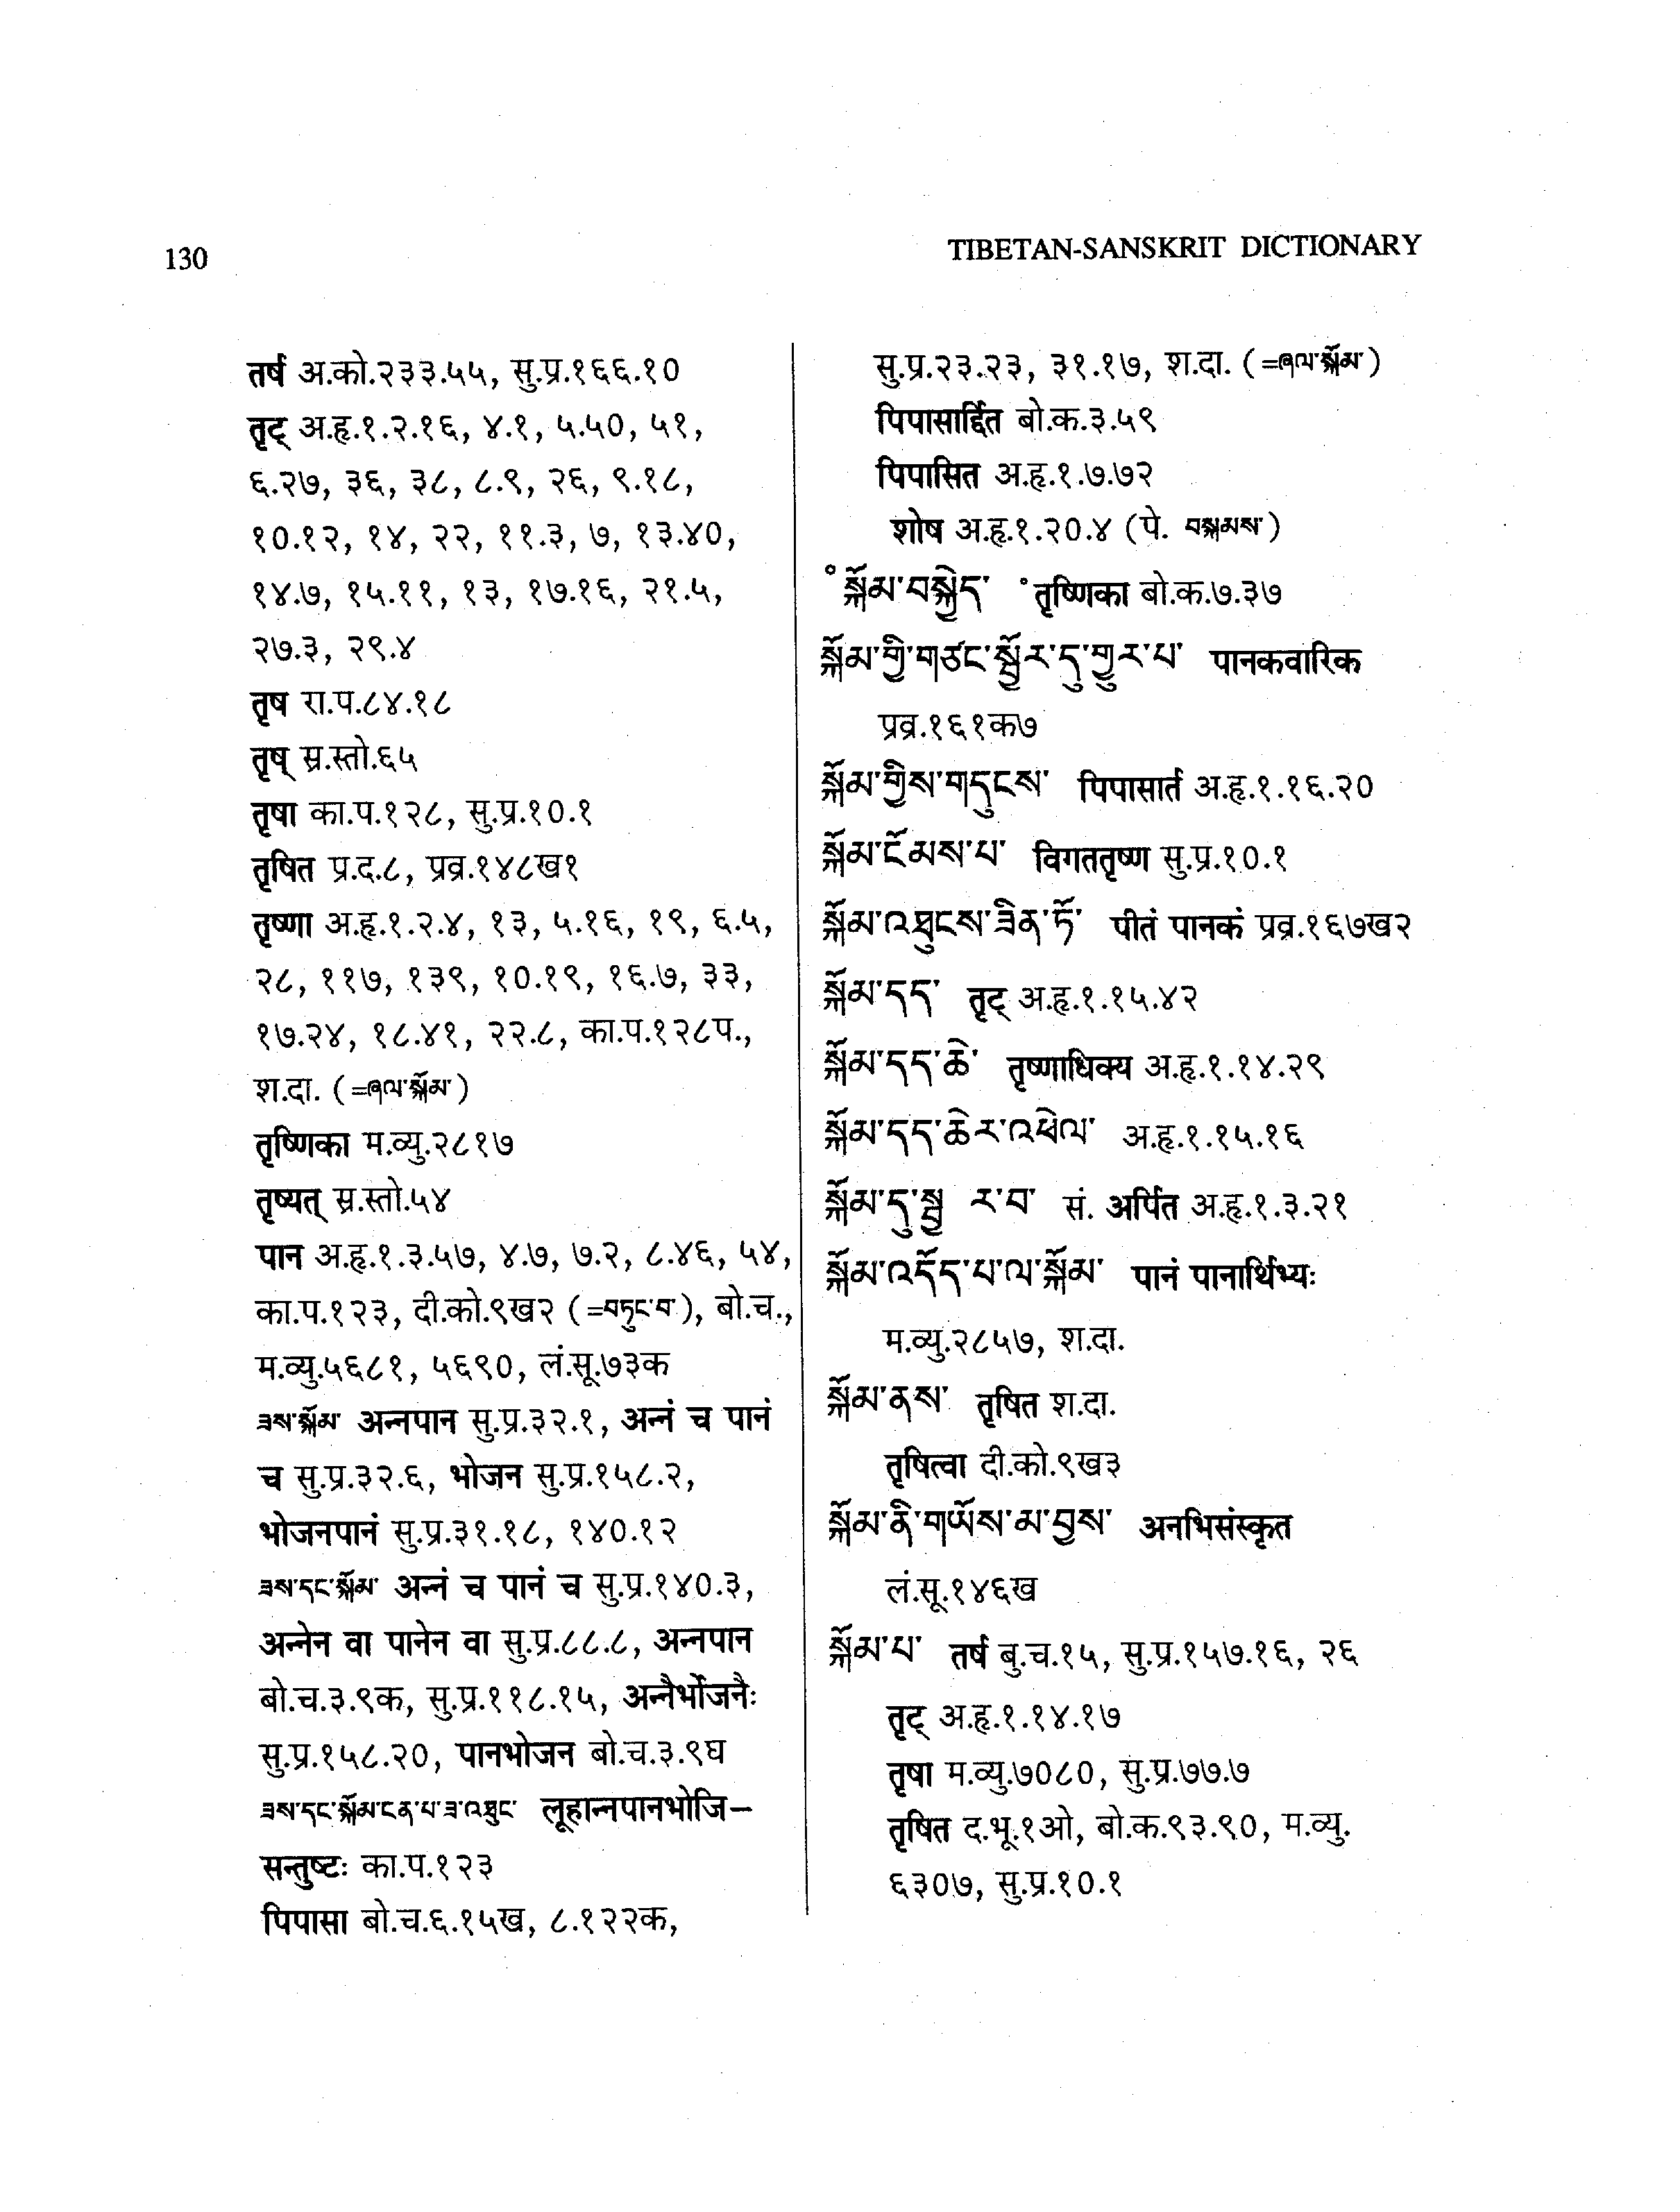 130
TIBETAN-SANSKRIT DICTIONARY
तर्ष अ.को.२३३.५५, सु.प्र.१६६.१०
तृट् अ.हृ.१.२.१६, ४.१, ५.५०, ५१,
६.२७, ३६, ३८, ८.९, २६, ९.१८,
१०.१२, १४, २२, ११.३, ७, १३.४०,
१४.७, १५.११, १३, १७.१६, २१.५,
२७.३, २९.४
तृष रा.प.८४.१८
तृष् स्र.स्तो.६५
तृषा का.प.१२८, सु.प्र.१०.१
तृषित प्र.द.८, प्रव्र.१४८ख१
तृष्णा अ.हृ.१.२.४, १३, ५.१६, १९, ६.५,
२८, ११७, १३९, १०.१९, १६.७, ३३,
१७.२४, १८.४१, २२.८, का.प.१२८प.,
श.दा. (=ཞལ་སྐོམ་)
तृष्णिका म.व्यु.२८१७
तृष्यत् स्र.स्तो.५४
पान अ.हृ.१.३.५७, ४.७, ७.२, ८.४६, ५४,
का.प.१२३, दी.को.९ख२ (=བཏུང་བ་), बो.च.,
म.व्यु.५६८१, ५६९०, लं.सू.७३क
ཟས་སྐོམ་ अन्नपान सु.प्र.३२.१, अन्नं च पानं
च सु.प्र.३२.६, भोजन सु.प्र.१५८.२,
भोजनपानं सु.प्र.३१.१८, १४०.१२
ཟས་དང་སྐོམ་ अन्नं च पानं च सु.प्र.१४०.३,
अन्नेन वा पानेन वा सु.प्र.८८.८, अन्नपान
बो.च.३.९क, सु.प्र.११८.१५, अन्नैर्भोजनैः
सु.प्र.१५८.२०, पानभोजन बो.च.३.९घ
ཟས་དང་སྐོམ་ངན་པ་ཟ་འཐུང་ लूहान्नपानभोजि–
सन्तुष्टः का.प.१२३
पिपासा बो.च.६.१५ख, ८.१२२क,
सु.प्र.२३.२३, ३१.१७, श.दा. (=ཞལ་སྐོམ་)
पिपासार्द्दित बो.क.३.५९
पिपासित अ.हृ.१.७.७२
शोष अ.हृ.१.२०.४ (पे. བསྐམས་)
°སྐོམ་བསྐྱེད་ °तृष्णिका बो.क.७.३७
སྐོམ་གྱི་གཙང་སྦྱོར་དུ་གྱུར་པ་ पानकवारिक
प्रव्र.१६१क७
སྐོམ་གྱིས་གདུངས་ पिपासार्त अ.हृ.१.१६.२०
སྐོམ་ངོམས་པ་ विगततृष्ण सु.प्र.१०.१
སྐོམ་འཐུངས་ཟིན་ཏོ་ पीतं पानकं प्रव्र.१६७ख२
སྐོམ་དད་ तृट् अ.हृ.१.१५.४२
སྐོམ་དད་ཆེ་ तृष्णाधिक्य अ.हृ.१.१४.२९
སྐོམ་དད་ཆེར་འཕེལ་ अ.हृ.१.१५.१६
སྐོམ་དུ་སྦྱ ར་བ་ सं. अर्पित अ.हृ.१.३.२१
སྐོམ་འདོད་པ་ལ་སྐོམ་ पानं पानार्थिभ्यः
म.व्यु.२८५७, श.दा.
སྐོམ་ནས་ तृषित श.दा.
तृषित्वा दी.को.९ख३
སྐོམ་ནི་གཡོས་མ་བྱས་ अनभिसंस्कृत
लं.सू.१४६ख
སྐོམ་པ་ तर्ष बु.च.१५, सु.प्र.१५७.१६, २६
तृट् अ.हृ.१.१४.१७
तृषा म.व्यु.७०८०, सु.प्र.७७.७
तृषित द.भू.१ओ, बो.क.९३.९०, म.व्यु.
६३०७, सु.प्र.१०.१